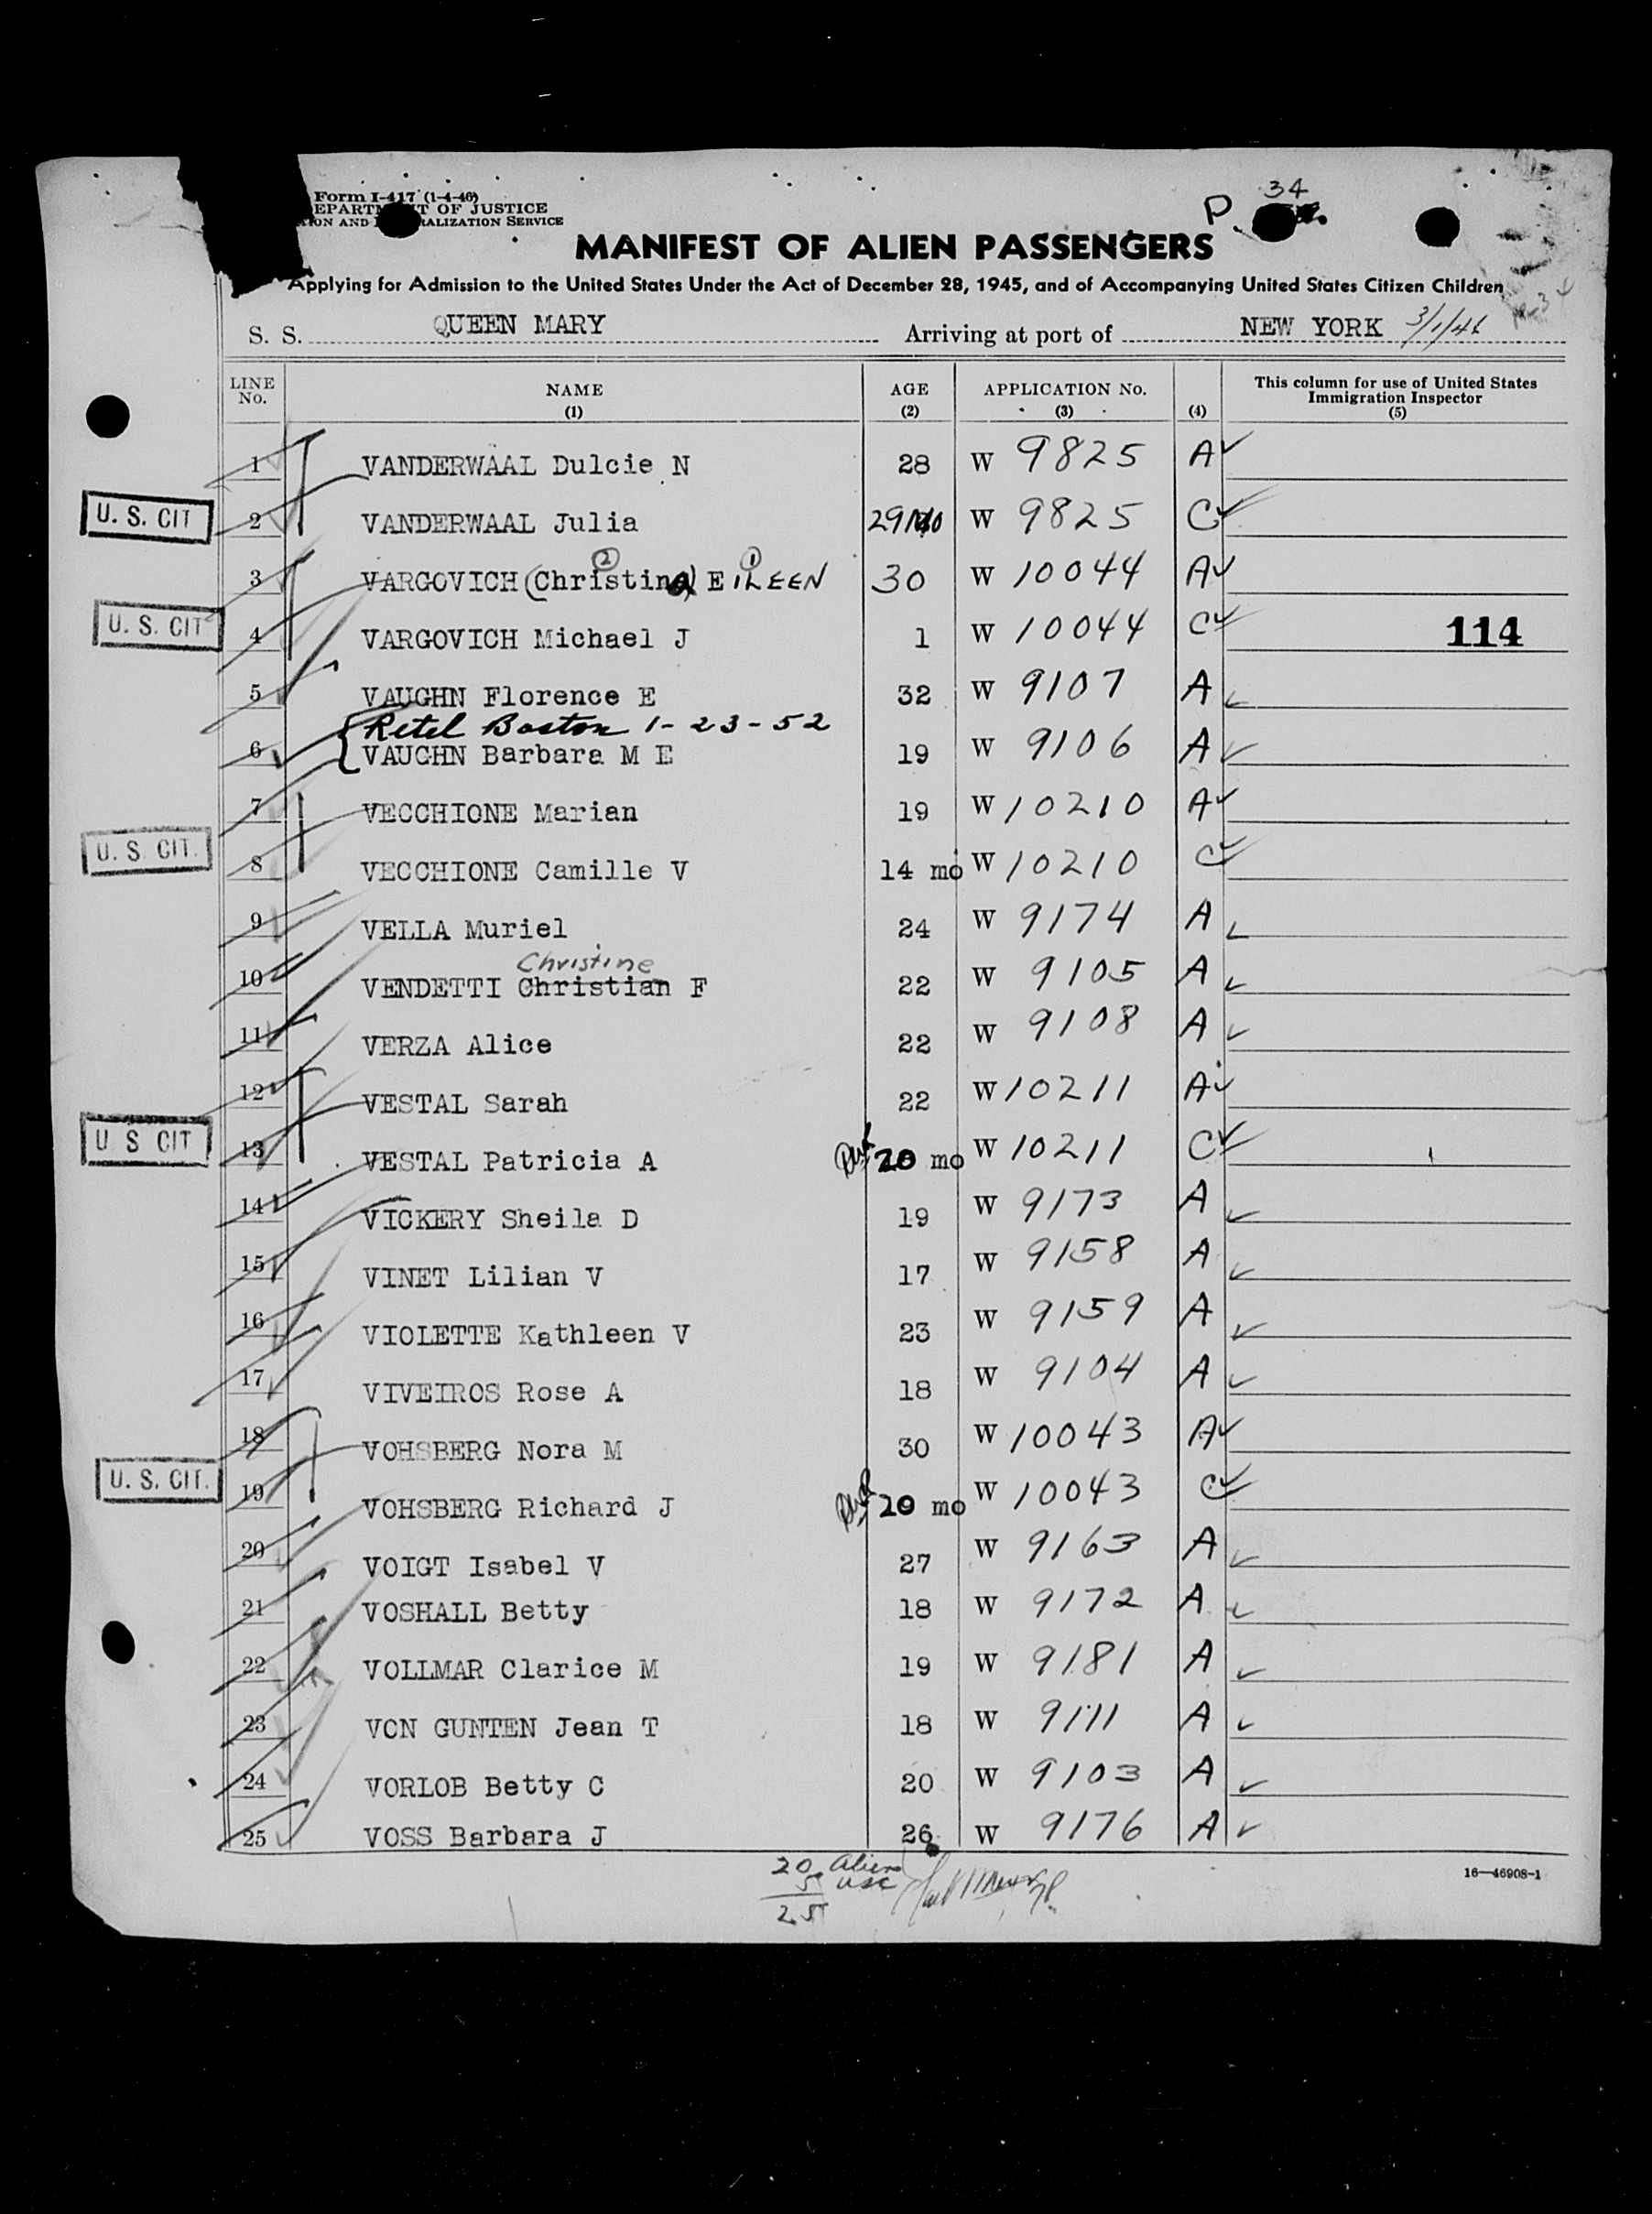 Form I-417 (1-4-46)
EPARTM T OF JUSTICE
ION AND RALIZATION SERVICE
P. 34
MANIFEST OF ALIEN PASSENGERS
Applying for Admission to the United States Under the Act of December 28, 1945, and of Accompanying United States Citizen Children
S. S. QUEEN MARY Arriving at port of NEW YORK 3/1/46
LINE No. NAME (1) AGE (2) APPLICATION No. (3) (4) This column for use of United States Immigration Inspector (5)
1 VANDERWAAL Dulcie N 28 W 9825 A
U. S. CIT 2 VANDERWAAL Julia 29 MO W 9825 C
3 VARGOVICH (Christina) EILEEN 30 W 10044 A
U. S. CIT 4 VARGOVICH Michael J 1 W 10044 C 114
5 VAUGHN Florence E 32 W 9107 A
Retel Boston 1-23-52
6 VAUGHN Barbara M E 19 W 9106 A
7 VECCHIONE Marian 19 W 10210 A
U. S. CIT. 8 VECCHIONE Camille V 14 mo W 10210 C
9 VELLA Muriel 24 W 9174 A
Christine
10 VENDETTI Christian F 22 W 9105 A
11 VERZA Alice 22 W 9108 A
12 VESTAL Sarah 22 W 10211 A
U S CIT 13 VESTAL Patricia A 20 mo W 10211 C
14 VICKERY Sheila D 19 W 9173 A
15 VINET Lilian V 17 W 9158 A
16 VIOLETTE Kathleen V 23 W 9159 A
17 VIVEIROS Rose A 18 W 9104 A
18 VOHSBERG Nora M 30 W 10043 A
U. S. CIT. 19 VOHSBERG Richard J 20 mo W 10043 C
20 VOIGT Isabel V 27 W 9163 A
21 VOSHALL Betty 18 W 9172 A
22 VOLLMAR Clarice M 19 W 9181 A
23 VON GUNTEN Jean T 18 W 9111 A
24 VORLOB Betty C 20 W 9103 A
25 VOSS Barbara J 26 W 9176 A
20 Alien
5 USC
25
16—46908-1